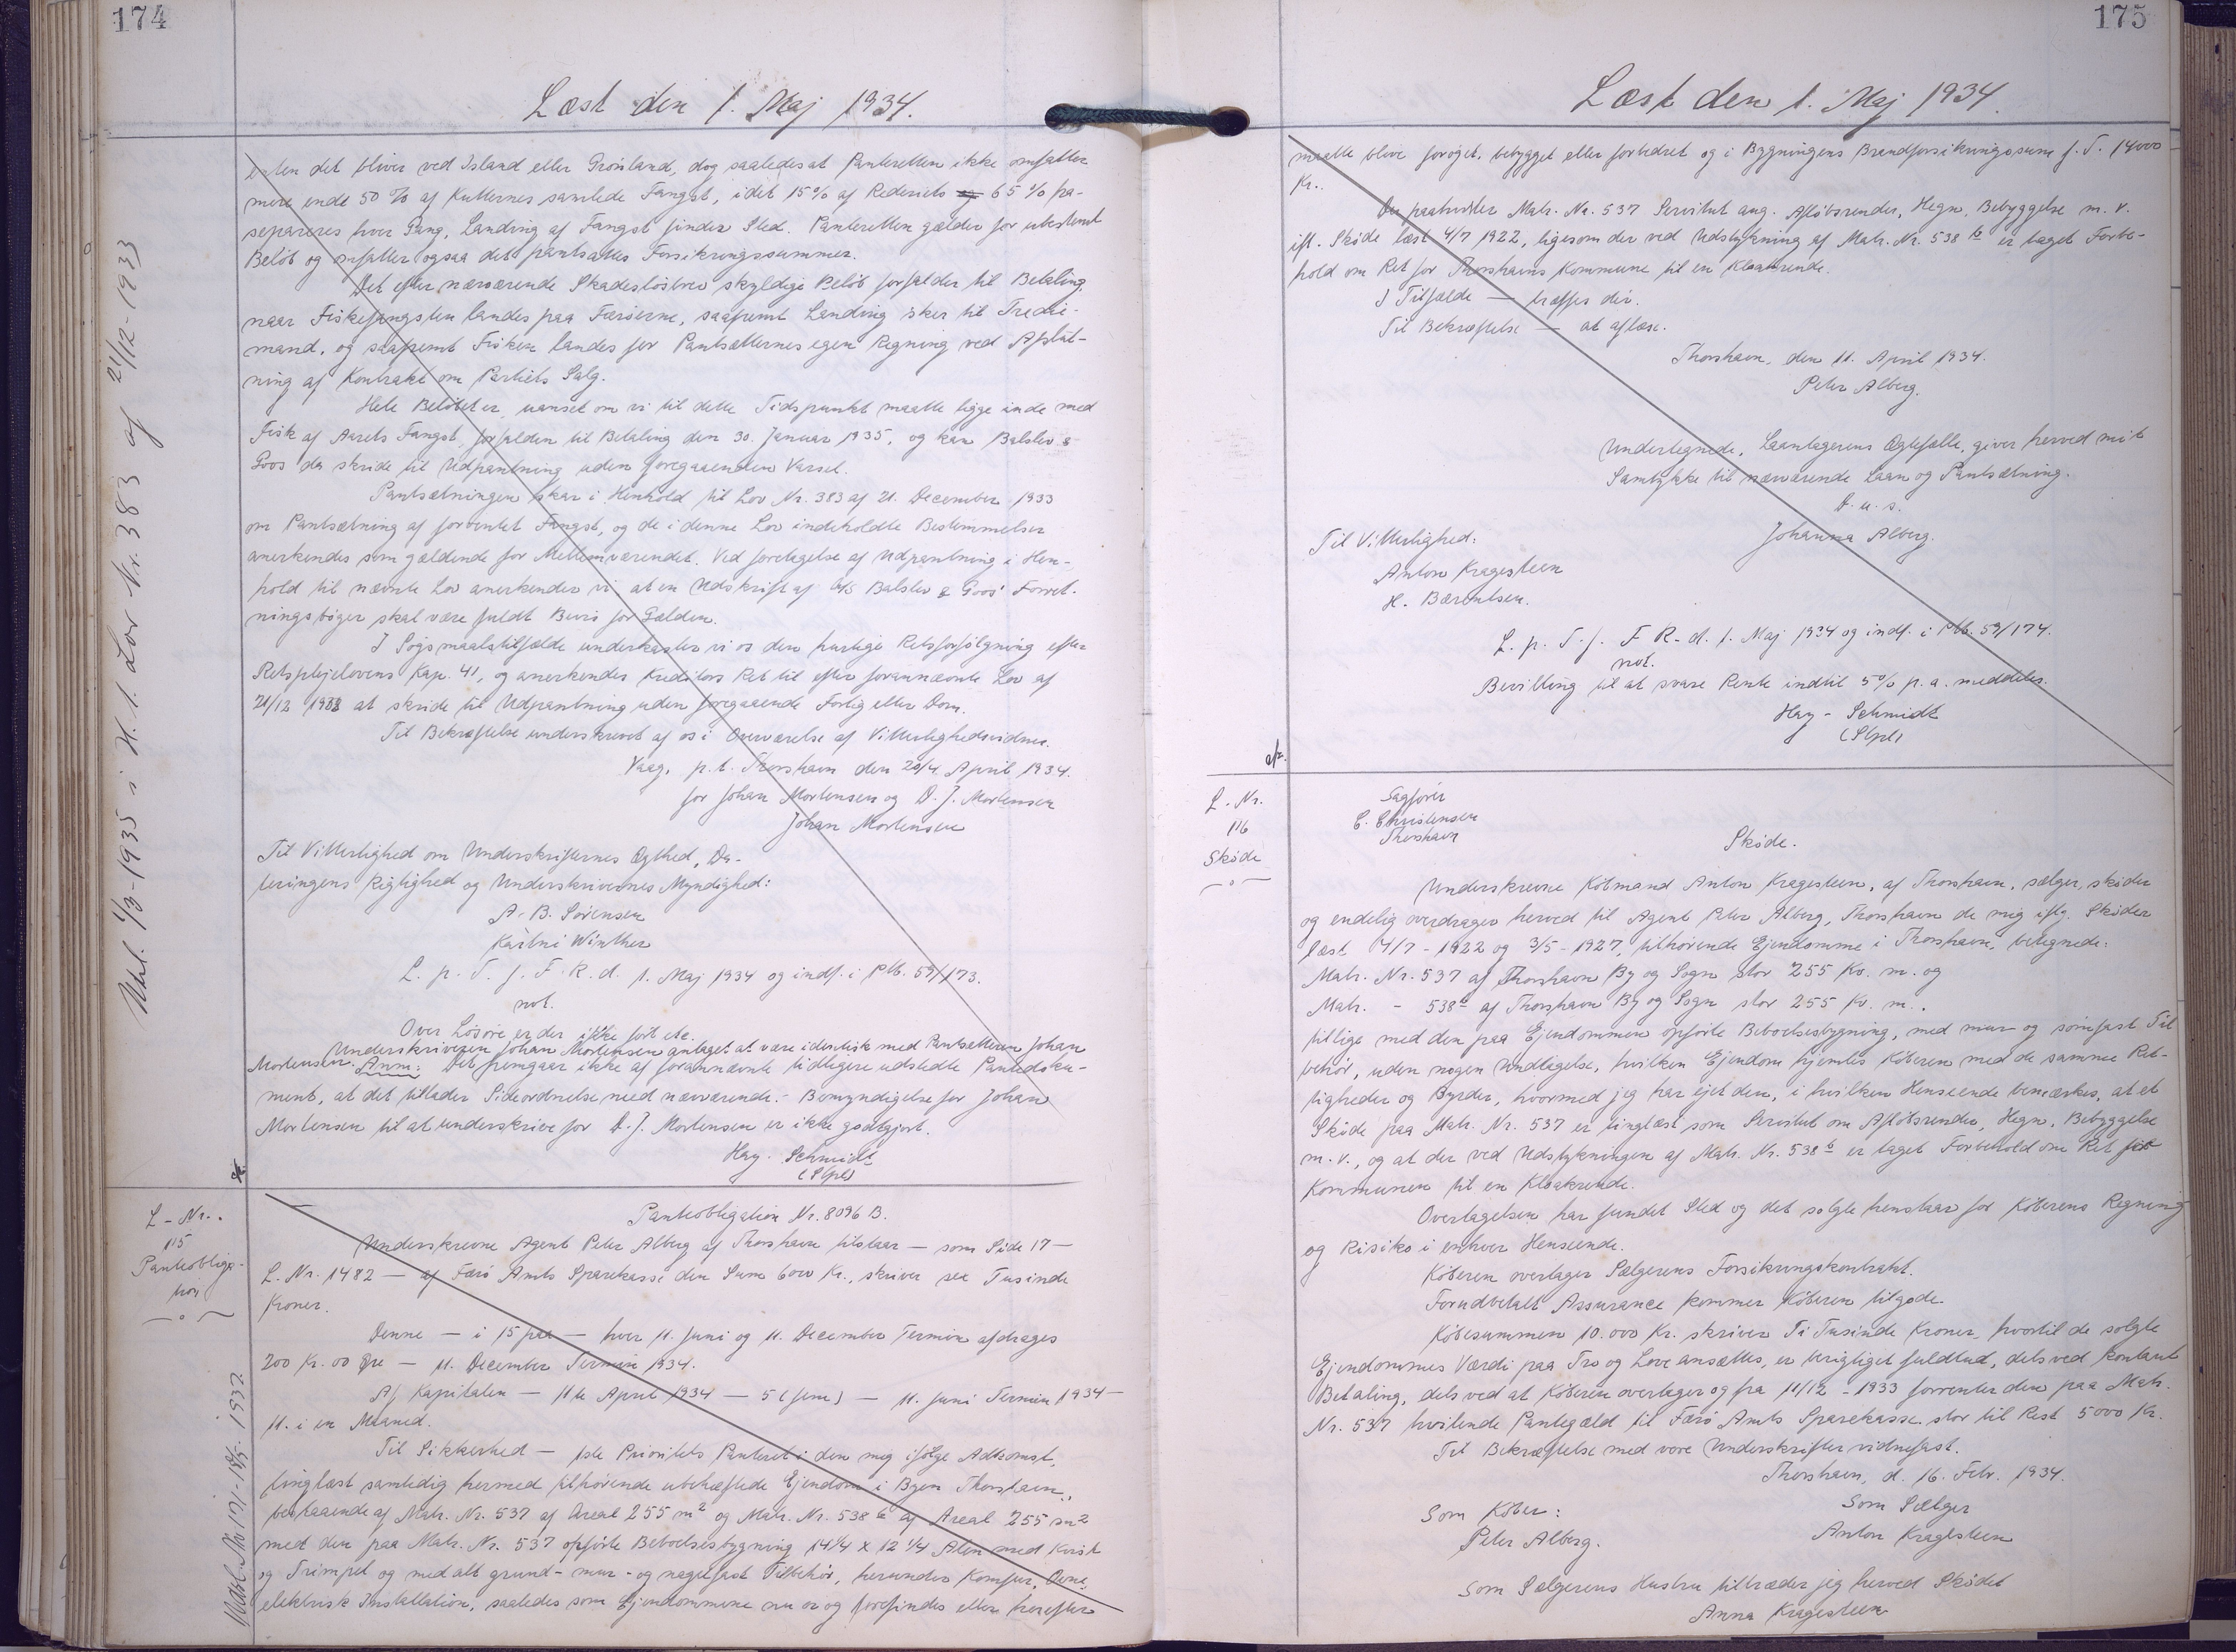 174
Læst den 1. Maj 1934.
enten det bliver ved Island eller Grønland, dog saaledes at Panteretten ikke omfatter
mere ende 50 % af Kutternes samlede Fangst, idet 15% af Rederiets 65 % pa-
separeres hver Gang, Landing af Fangst finder Sted. Panteretten gælder for ubestemt
Beløb og omfatter ogsaa det pantsattes Forsikringssummer.
Det efter nærværende Skadesløsbrev skyldige Beløb forfalder til Betaling
naar Fiskefangsten landes paa Færøerne, saafremt Landing sker til Tredie-
mand, og saafremt Fisken landes for Pantsætternes egen Regning ved Afslut-
ning af Kontrakt om Partiets Salg.
Hele Beløbet er, uanset om vi til dette Tidspunkt maatte ligge inde med
Fisk af Aarets Fangst, forfalden til Betaling den 30. Januar 1935, og kan Balslev &
Goos da skride til Udpantning uden foregaaenden Varsel.
Pantsætningen sker i Henhold til Lov Nr. 383 af 21. December 1933
om Pantsætning af forventet Fangst, og de i denne Lov indeholdte Bestemmelser
anerkendes som gældende for Mellemværendet. Ved foretagelse af Udpantning i Hen-
hold til nævnte Lov anerkender vi, at en Udskrift af A/S Balslev & Goos' Forret-
ningsbøger skal være fuldt Bevis for Gælden.
I Søgsmaalstilfælde underkaster vi os den hurtige Retsforfølgning efter
Retsplejelovens Kap. 41, og anerkender Kreditors Ret til efter forannævnte Lov af
21/12 1933 at skride til Udpantning uden foregaaende Forlig eller Dom.
Til Bekræftelse underskrevet af os i Overværelse af Vitterlighedsvidner.
Vaag, p.t. Thorshavn den 20/4 April 1934.
for Johan Mortensen og D. J. Mortensen
Johan Mortensen
Til Vitterlighed om Underskrifternes Ægthed, Da-
teringens Rigtighed og Underskrivernes Myndighed:
A. B. Sørensen
Karbni Winther
L. p. T. f. F. R. d. 1. Maj 1934 og indf. i Ptb. 59/173.
not.
Over Løsøre er der ikke ført etc.
Underskriveren Johan Mortensen antaget at være identisk med Pantsætteren Johan
Mortensen. Anm: Det fremgaar ikke af forannævnte tidligere udstedte Pantedoku-
ment, at det tillader Sideordnelse med nærværende. - Bemyndigelse for Johan
Mortensen til at underskrive for D. J. Mortensen er ikke godtgjort.
Hay-Schmidt
(Slpl)
Udsl. 1/3-1935 i H. t. Lov Nr. 383 af 21/12-1933
L-Nr.
115
Panteobliga-
tion
Panteobligation Nr. 8096 B.
Underskrevne Agent Peter Alberg af Thorshavn tilstaar — som Side 17 —
L. Nr. 1482 — af Færø Amts Sparekasse den Sum 6000 Kr., skriver sex Tusinde
Kroner.
Denne — i 15 paa — hver 11. Juni og 11. December Termin afdrages
200 Kr. 00 Øre — 11. December Termin 1934.
Af Kapitalen — 11te April 1934 — 5 (fem) — 11. Juni Termin 1934 —
11. i en Maaned.
Til Sikkerhed — 1ste Prioritets Panteret i den mig ifølge Adkomst,
tinglæst samtidig hermed tilhørende ubehæftede Ejendom i Byen Thorshavn,
bestaaende af Matr. Nr. 537 af Areal 255 m² og Matr. Nr. 538 b af Areal 255 m²
med den paa Matr. Nr. 537 opførte Beboelsesbygning 14 1/4 x 12 1/4 Alen med Kvist
og Trimpel og med alt grund- mur- og nagelfast Tilbehør, herunder Komfur, Ovne,
elektrisk Installation, saaledes som Ejendommene nu er og forefindes eller herefter
175
Læst den 1. Maj 1934.
maatte blive forøget, bebygget eller forbedret og i Bygningens Brandforsikringssum f. T. 14000
Kr..
Der paahviler Matr. Nr. 537 Servitut ang. Afløbsrender, Hegn, Bebyggelse m. v.
ifl. Skøde læst 4/7 1922, ligesom der ved Udstykning af Matr. Nr. 538 b er taget Forbe-
hold om Ret for Thorshavns Kommune til en Kloakrende.
I Tilfælde — træffes dér.
Til Bekræftelse — at aflæse.
Thorshavn, den 11. April 1934.
Peter Alberg.
Undertegnede, Laantagerens Ægtefælle, giver herved mit
Samtykke til nærværende Laan og Pantsætning.
D. u. s.
Johanna Alberg.
Til Vitterlighed:
Anton Kragesteen
H. Bærentsen.
L. p. T. f. F. R. d. 1. Maj 1934 og indf. i Ptb. 59/174.
not.
Bevilling til at svare Rente indtil 5% p. a. meddeles.
Hay-Schmidt
(Slpl)
L. Nr.
116
Skøde
Sagfører
C. Christensen
Thorshavn
Skøde.
Underskrevne Købmand Anton Kragesteen, af Thorshavn, sælger, skøder
og endelig overdrager herved til Agent Peter Alberg, Thorshavn de mig iflg. Skøder
læst 4/7 - 1922 og 3/5 - 1927, tilhørende Ejendomme i Thorshavn, betegnede:
Matr. Nr. 537 af Thorshavn By og Sogn stor 255 Kv. m. og
Matr. - 538 b af Thorshavn By og Sogn stor 255 Kv. m..
tillige med den paa Ejendommen opførte Beboelsesbygning, med mur- og sømfast Til
behør, uden nogen Undtagelse, hvilken Ejendom hjemles Køberen med de samme Ret-
tigheder og Byrder, hvormed jeg har ejet den, i hvilken Henseende bemærkes, at et
Skøde paa Matr. Nr. 537 er tinglæst som Servitut om Afløbsrender, Hegn, Bebyggelse
m. v., og at der ved Udstykningen af Matr. Nr. 538 b er taget Forbehold om Ret for
Kommunen til en Kloakrende.
Overtagelsen har fundet Sted og det solgte henstaar for Køberens Regning
og Risiko i enhver Henseende.
Køberen overtager Sælgerens Forsikringskontrakt.
Forudbetalt Assurance kommer Køberen tilgode.
Købesummen 10.000 Kr. skriver Ti Tusinde Kroner, hvortil de solgte
Ejendommes Værdi paa Tro og Love ansættes, er berigtiget fuldtud, dels ved kontant
Betaling, dels ved at Køberen overtager og fra 11/12 - 1933 forrenter den paa Matr.
Nr. 537 hvilende Pantegæld til Færø Amts Sparekasse stor til Rest 5000 Kr.
Til Bekræftelse med vore Underskrifter vidnefast.
Thorshavn, d. 16. Febr. 1934.
Som Køber:
Peter Alberg.
Som Sælger
Anton Kragesteen
Som Sælgerens Hustru tiltræder jeg herved Skødet
Anna Kragesteen